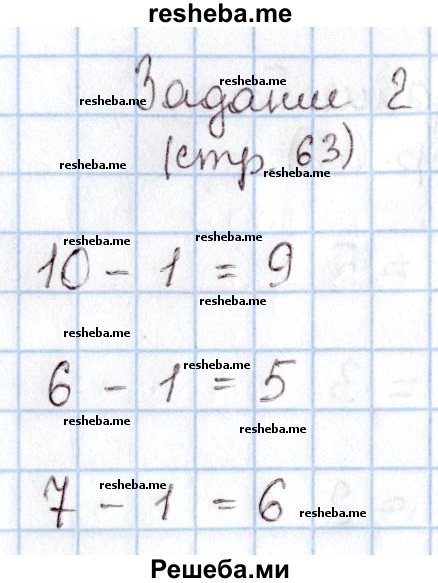 resheba.me
Задание 2
resheba.me
resheba.me
(стр. 63)
resheba.me
resheba.me
resheba.me
resheba.me
10 - 1 = 9
resheba.me
resheba.me
resheba.me
6 - 1 = 5
resheba.me
resheba.me
resheba.me
7 - 1 = 6
resheba.me
Решеба.ми